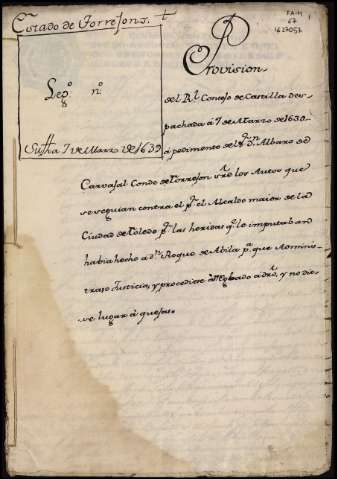 Estado de Torrejon.
Leg.º n.º
Su f̃ha 7 de Marzo de 1639
FA-M
67
Provision
del R.l Consejo de Castilla des
pachada à 7 de Marzo de 1639.
à pedimento de el S.r D.n Albaro de
Carvajal Conde de Torrejon s̃re los Autos que
se seguian contra el p.r el Alcalde maior de la
Ciudad de Toledo p.r las heridas q.e le imputaban
habia hecho à d.n Roque de Abila p.a que Adminis
trase Justicia, y procediese arreglado à dro, y no die
se lugar à quejas.